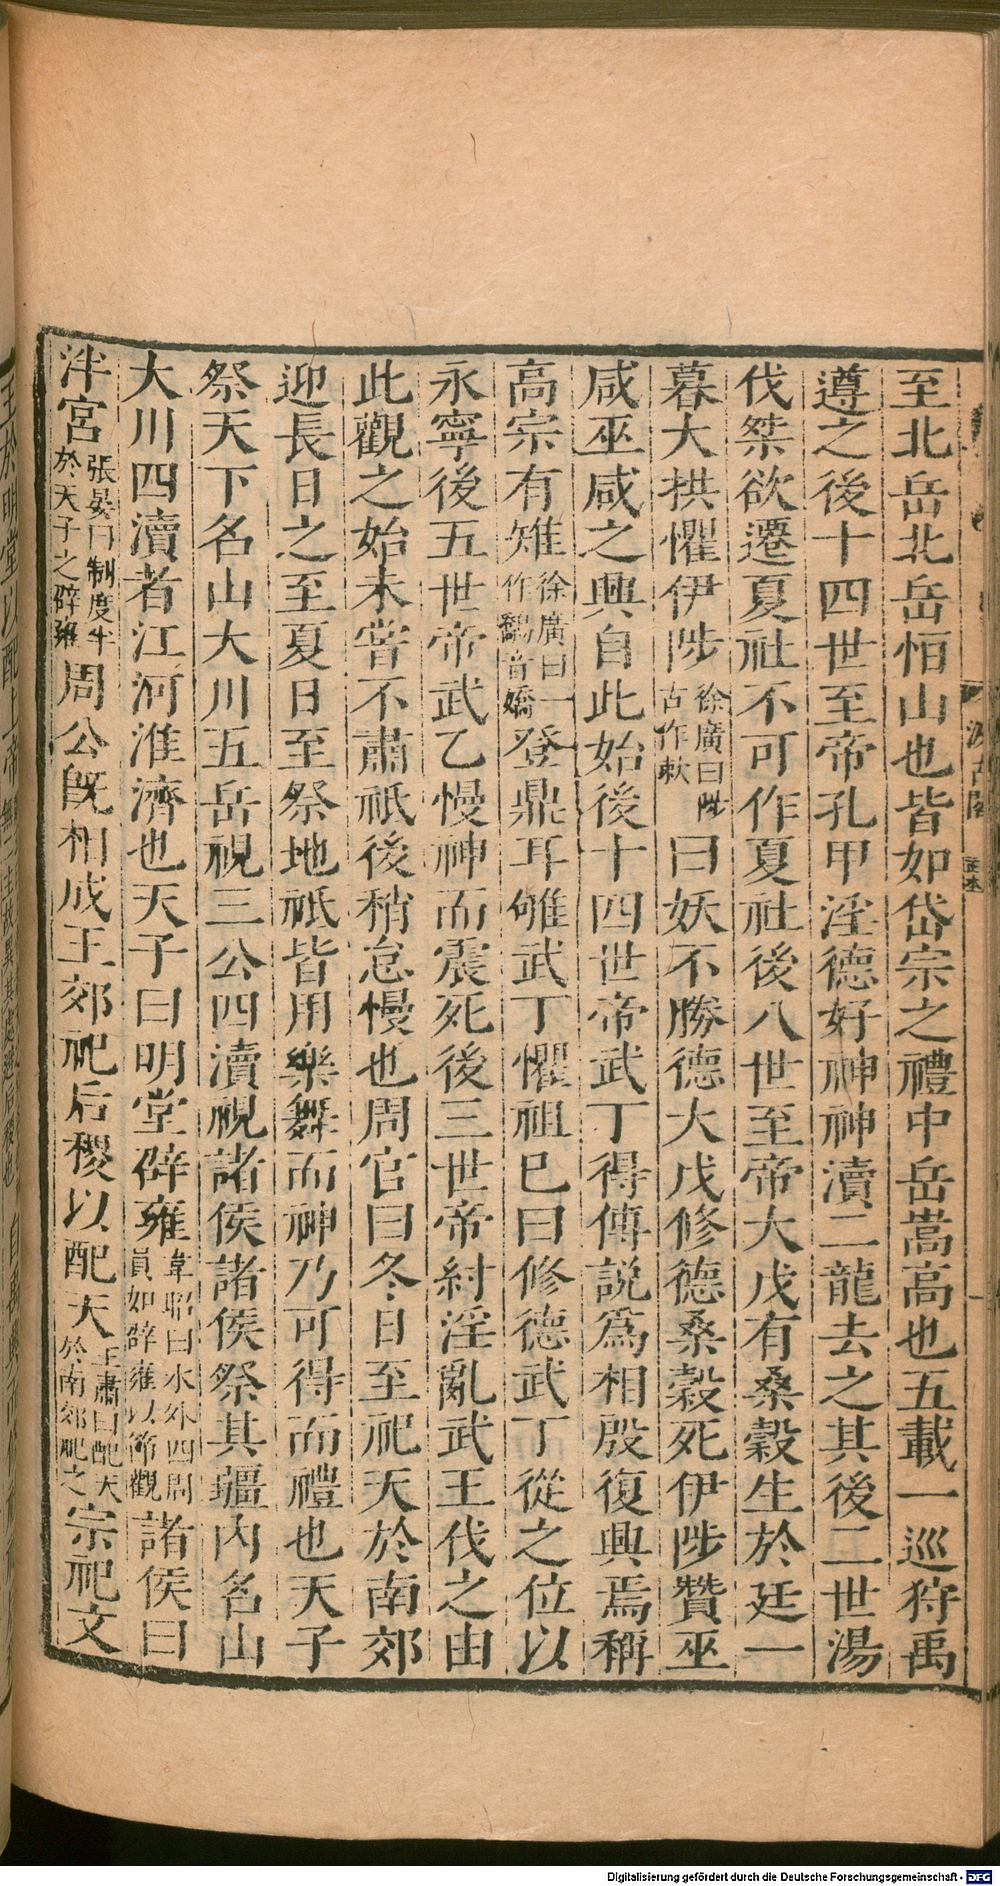 至北岳北岳恒山也皆如岱宗之禮中岳嵩高也五載一巡狩禹
遵之後十四世至帝孔甲淫德好神神瀆二龍去之其後二世湯
伐桀欲遷夏社不可作夏社後八世至帝大戊有桑榖生於廷一
暮大拱懼伊陟徐廣曰陟古作𠡠曰妖不勝德大戊修德桑榖死伊陟贊巫
咸巫咸之興自此始後十四世帝武丁得傅説爲相殷復興焉稱
高宗有雉徐廣曰一作鷮音嬌登鼎耳雊武丁懼祖已曰修德武丁從之位以
永寧後五世帝武乙慢神而震死後三世帝紂淫亂武王伐之由
此觀之始未嘗不肅祗後稍怠慢也周官曰冬日至祀天於南郊
迎長日之至夏日至祭地祇皆用樂舞而神乃可得而禮也天子
祭天下名山大川五岳視三公四瀆視諸侯諸侯祭其疆内名山
大川四瀆者江河淮濟也天子曰明堂辟雍韋昭曰水外四周員如辟雍以節觀諸侯曰
泮宮張晏曰制度半於天子之辟雍周公既相成王郊祀后稷以配天王肅曰配天於南郊祀之宗祀文
汲古閣
Digitalisierung gefördert durch die Deutsche Forschungsgemeinschaft - DFG